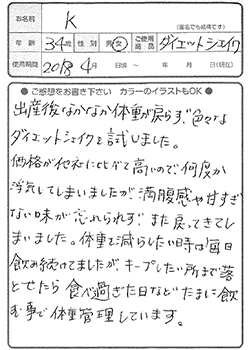 お名前 K
(匿名でも結構です)
年齢 34歳 性別 男・女 ご使用商品 ダイエットシェイク
使用期間 2018年4月 日頃 ~ 年 月 日(現在)
●ご感想をお書き下さい カラーのイラストもOK●
出産後なかなか体重が戻らず、色々な
ダイエットシェイクを試しました。
価格が他社に比べて高いので、何度か
浮気してしまいましたが、満腹感や甘すぎ
ない味が忘れられず、また戻ってきてし
まいました。体重を減らしたい時は毎日
飲み続けてましたが、キープしたい所まで落
とせたら食べ過ぎた日などたまに飲
む事で体重管理しています。